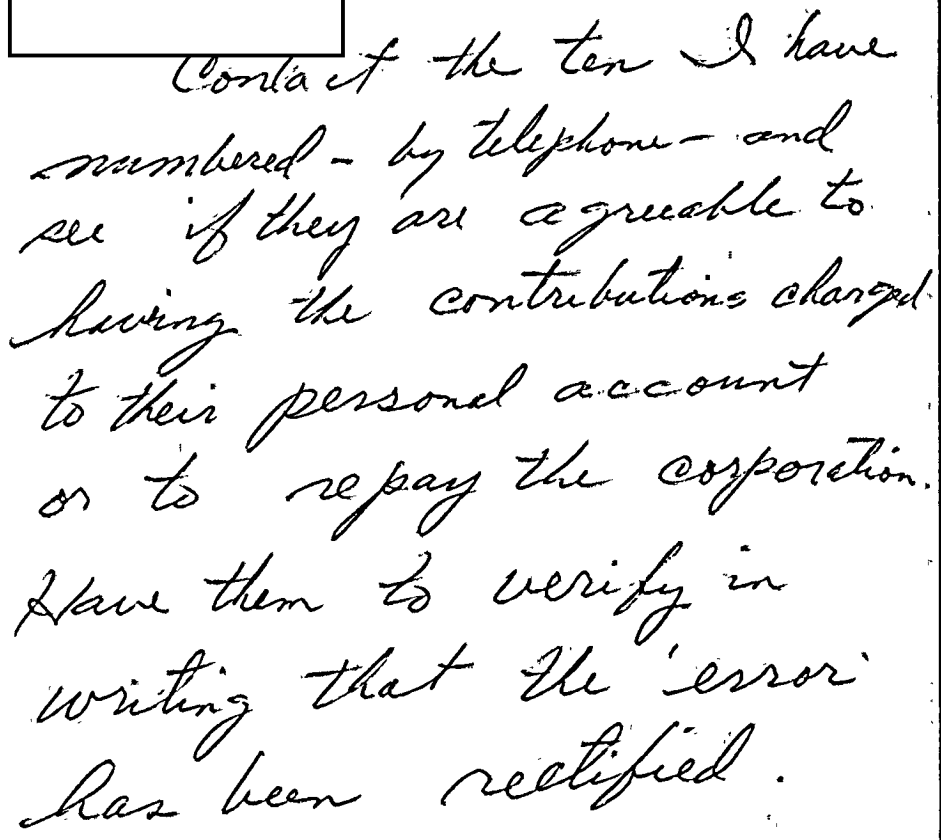 Contact the ten I have
numbered - by telephone - and
see if they are agreeable to
having the contributions charged
to their personal account
or to repay the corporation.
Have them to verify in
writing that the 'error'
has been rectified.